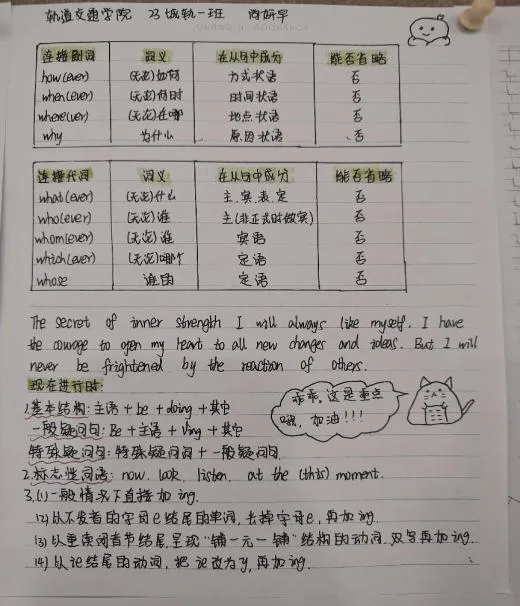 轨道交通学院 23城轨一班
连接副词 词义 在从句中成分 能否省略
how(ever) (无论)如何 方式状语 否
when(ever) (无论)何时 时间状语 否
where(ver) (无论)在哪 地点状语 否
why 为什么 原因状语 否
连接代词 词义 在从句中成分 能否省略
what(ever) (无论)什么 主.宾.表.定 否
who(ever) (无论)谁 主(非正式时做宾) 否
whom(ever) (无论)谁 宾语 否
which(ever) (无论)哪个 定语 否
whose 谁的 定语 否
The secret of inner strength I will always like myself. I have
the courage to open my heart to all new changes and ideas. But I will
never be frightened by the reaction of others.
现在进行时:
1.基本结构:主语 + be + doing + 其它
一般疑问句: Be + 主语 + Ving + 其它
特殊疑问句:特殊疑问词 + 一般疑问句
乖乖,这是重点
哦,加油!!!
2.标志性词语: now. look. listen. at the (this) moment.
3.(1)一般情况下直接加 ing.
(2)以不发音的字母e结尾的单词,去掉字母e,再加ing.
(3)以重读闭音节结尾,呈现"辅一元一辅"结构的动词,双写再加ing.
(4)以ie结尾的动词,把ie改为y,再加ing.